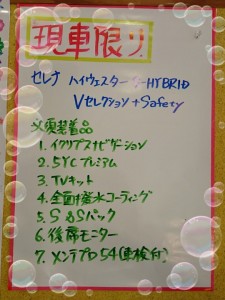 現車限り
セレナ ハイウェスターS-HYBRID
Vセレクション+Safety
※実装着品
1. イクリプスナビゲーション
2. 5YCプレミアム
3. TVキット
4. 全面撥水コーティング
5. S&Sパック
6. 後席モニター
7. メンテプロ54(車検付)